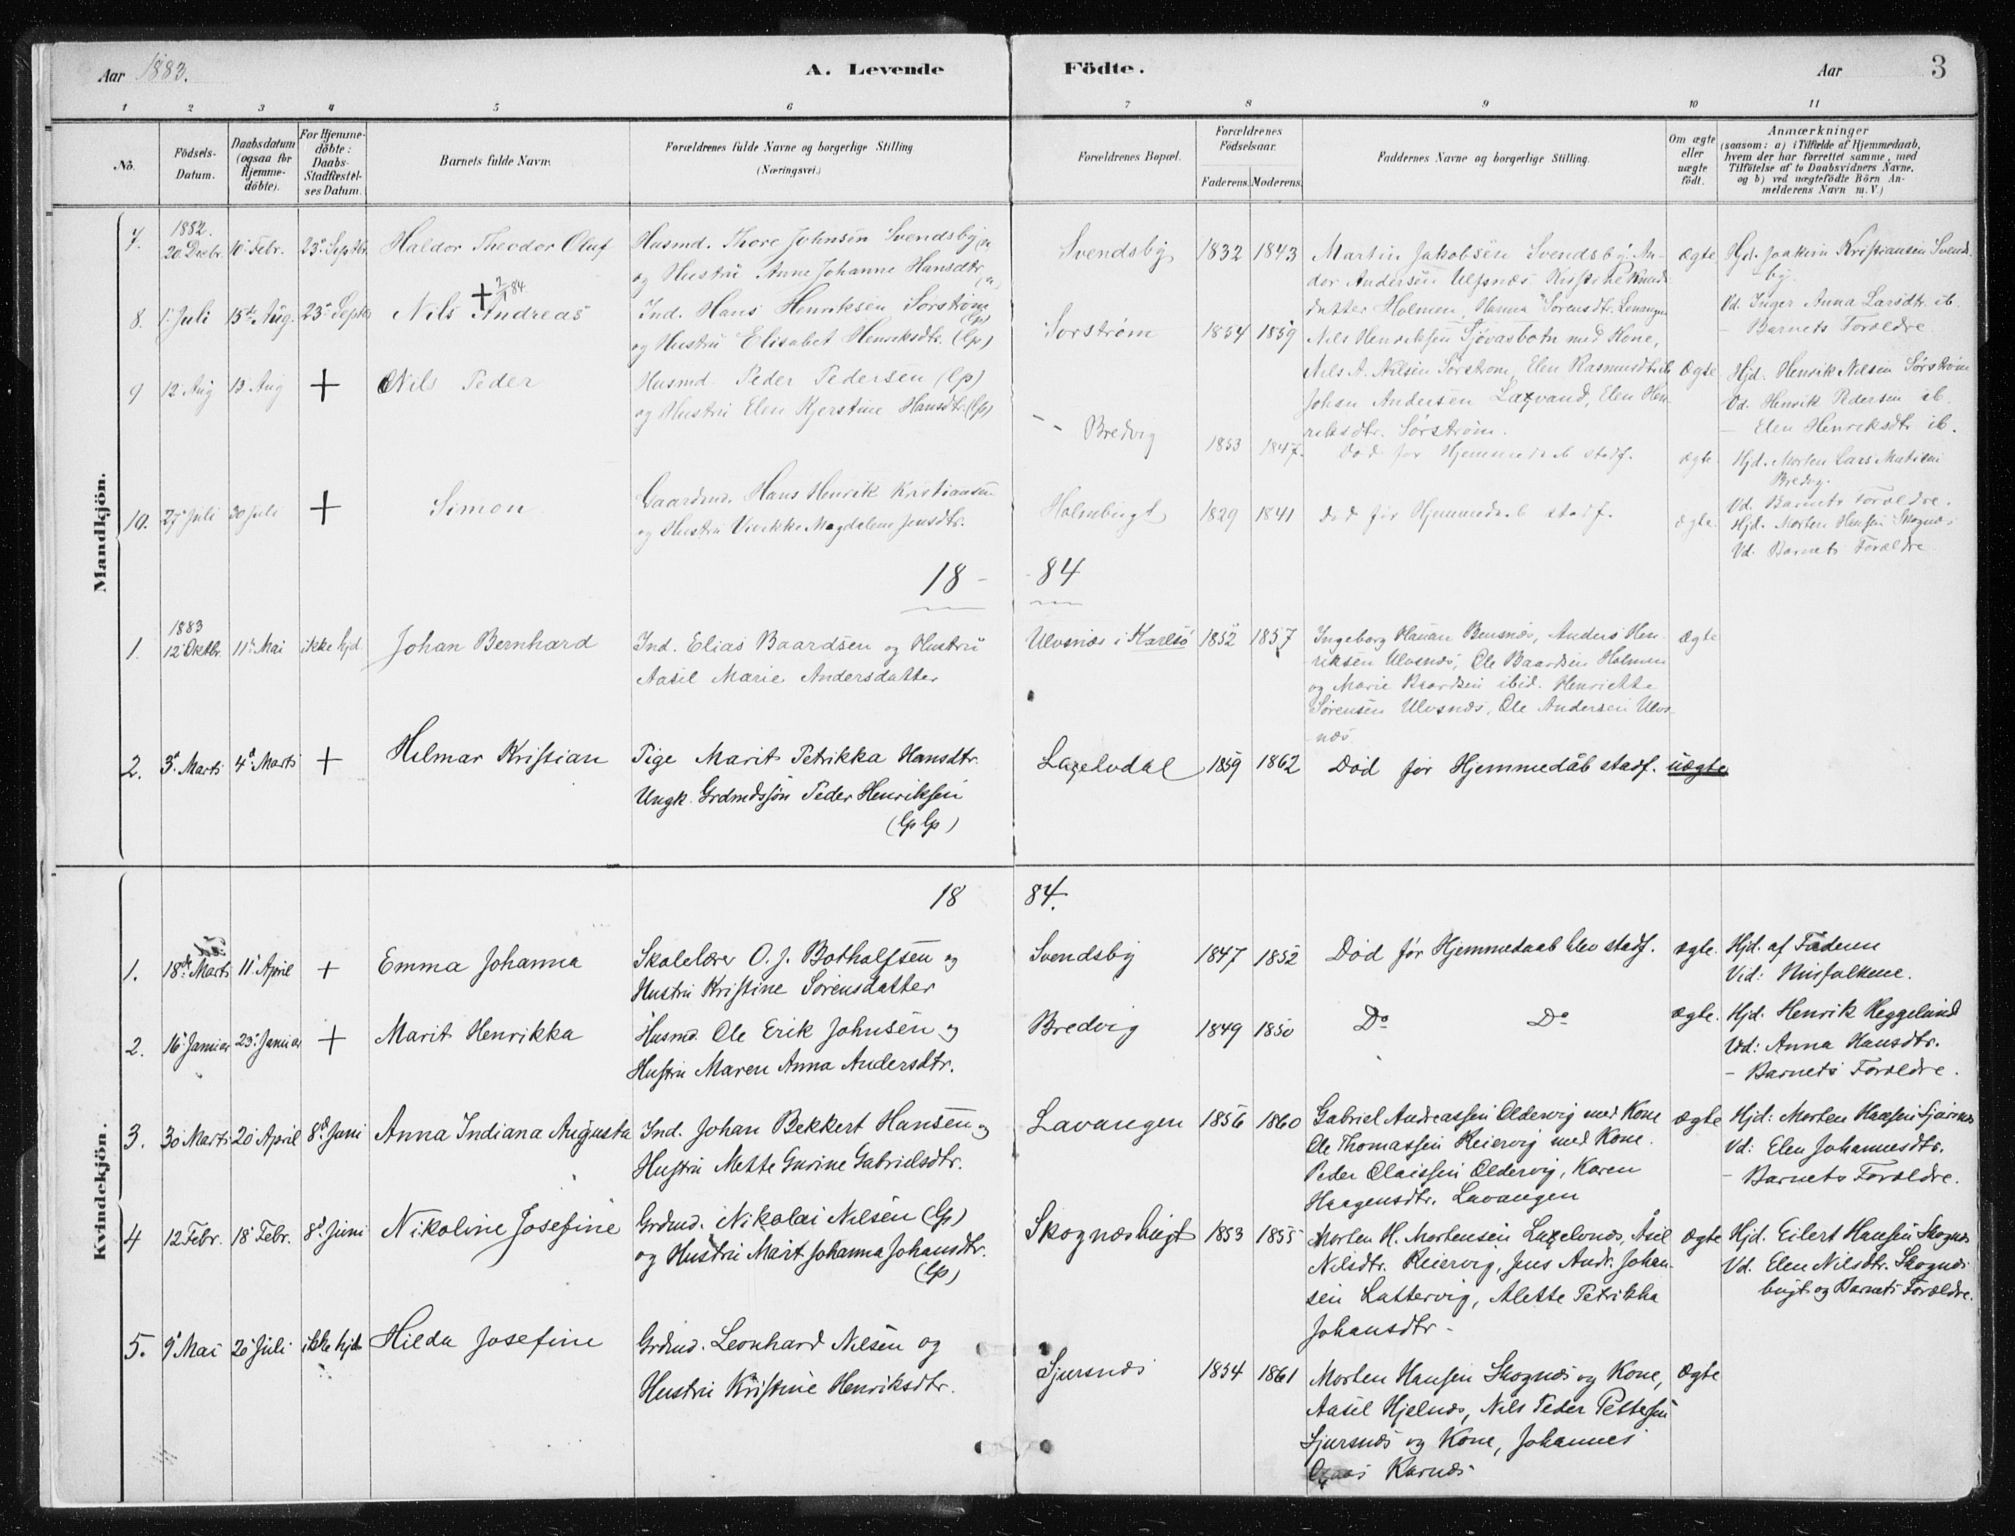 Aar 1883.
A. Levende Födte.
Aar 3
1 2 3 4 5 6 7 8 9 10 11
No.
Födsels-Datum.
Daabsdatum (ogsaa for Hjemme-döbte).
For Hjemme-döbte: Daabs-Stadfæstel-ses Datum.
Barnets fulde Navn.
Forældrenes fulde Navne og borgerlige Stilling (Næringsvei.)
Forældrenes Bopæl.
Forældrenes Födselsaar.
Faderens. Moderens.
Faddernes Navne og borgerlige Stilling.
Om ægte eller uægte födt.
Anmærkninger
(saasom: a) i Tilfælde af Hjemmedaab, hvem der har forrettet samme, med Tilföielse af to Daabsvidners Navne, og b) ved uægtefödte Börn Anmelderens Navn m. V.)
Mandkjön.
7. 1882. 20 Decbr. 10 Febr. 23 Septbr. Haldor Theodor Oluf
Husmd. Thore Johnsen Svendsby
og Hustru Anne Johanne Hansdtr.
Svendsby 1832 1843
Martin Jakobsen Svendsby, An-
ders Andersen Ulfsnæs
datter Holmen, Hanna Sørensdtr.
ægte
Hjd. Joakim Kristiansen Svends-
by.
Vd. Inger Anna Larsdtr. ib.
- Barnets Forældre
8. 1 Juli 15de Aug. 23 Septbr + 2/1 84 Nils Andreas
Ind. Hans Henriksen Sørstrøm (lp)
og Hustru Elisabet Henriksdtr. (lp)
Sorstrøm 1854 1859
Nils Henriksen Sjøvasbotn med Kone,
Nils A. Nilsen Sørstrøm, Elen Rasmusdtr ib
Johan Andersen Laxvand, Elen Hen-
riksdtr. Sørstrøm.
Ægte
Hjd. Henrik Nilsen Sørstrøm
Vd. Henrik Pedersen ib.
- Elen Henriksdtr ib.
9 12 Aug 13 Aug + Nils Peder
Husmd. Peder Pedersen (lp)
og Hustru Elen Kjerstine Hansdtr. (lp)
Bredvig 1853 1847.
Død før Hjemmedaab stadf.
ægte
Hjd. Morten Lars Matisen
Bredvig.
Vd. Barnets Forældre.
10. 27 Juli 30 Juli + Simon
Gaardmd. Hans Henrik Kristiansen
og Hustru Vivikke Magdalene Jensdtr.
Holmbugt 1829 1841
Død før Hjemmedaab stadf.
ægte.
Hjd. Morten Hansen Skognæs
Vd. Barnets Forældre
18 - 84
1. 1883 12 Oktbr. 11te Mai ikke hjd. Johan Bernhard
Ind. Elias Baardsen og Hustru
Aasil Marie Andersdatter
Ulvsnæs i Karlsö 1852 1857
Ingeborg Hauan Bensnæs, Anders Hen-
riksen Ulvsnæs, Ole Baardsen Holmen
og Marie Baardsen ibid. Henriette
Sørensen Ulvsnæs, Ole Andersen Ulvs-
næs
ægte
2. 3 Marts 4 Marts + Hilmar Kristian
Pige Marit Petrikka Hansdtr.
Ungk. Grdmdssøn Peder Henriksen
(lp lp)
Laxelvdal 1859 1862
Død før Hjemmedåb stadf. uægte
Kvindekjön.
18 84.
1. 18de Marts 11 April + Emma Johanna
Skolelærer O. J. Botholfsen og
Hustru Kristine Sörensdatter
Svendsby 1847 1852
Død før Hjemmedaab blev stadf. ægte.
Hjd. af Faderen
Vid: Husfolkene.
2. 16 Januar 23 Januar + Marit Henrikka
Husmd. Ole Erik Johnsen og
Hustru Maren Anna Andersdtr.
Bredvig 1849 1850
Do Do ægte.
Hjd. Henrik Heggelund
Vd: Anna Hansdtr.
- Barnets Forældre.
3. 30 Marts 20 April 8de Juni Anna Indiana Augusta
Ind. Johan Bekkert Hansen og
Hustru Mette Gurine Gabrielsdtr.
Lavangen 1856 1860
Gabriel Andreassen Oldervig med Kone
Ole Thomassen Reiervig med Kone.
Peder Olaissen Oldervig, Karen
Haagensdtr. Lavangen
ægte
Hjd: Morten Hansen
Vd: Elen Johannesdtr.
- Barnets Forældre.
4 12 Febr. 18 Febr. 8de Juni Nikoline Josefine
Grdmd. Nikolai Nilsen (lp)
og Hustru Marit Johanna Johansdtr.
(lp)
Skognæsbugt 1853 1855
Morten H. Mortensen Laxelvnæs, Åsil
Nilsdtr. Reiervig, Jens Andr. Johan-
sen Lattervig, Alette Petrikka
Johansdtr -
Ægte
Hjd. Eilert Hansen Skognæs
Vd. Elen Nilsdtr. Skognæs
bugt og Barnets Forældre.
5. 9 Mai 20 Juli ikke hjd. Hilda Josefine
Grdmd. Leonhard Nilsen og
Hustru Kristine Henriksdtr.
Sjursnæs 1854 1861
Morten Hansen Skognæs og Kone,
Aasil Hjelnæs, Nils Peder Pettersen
Sjursnæs og Kone, Johannes
Karnæs
Ægte